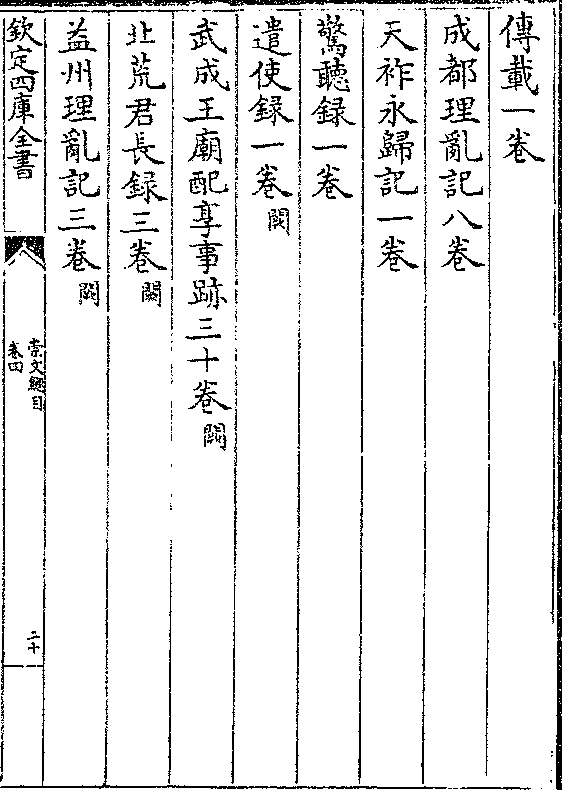 傳載一卷
成都理亂記八卷
天祚永歸記一卷
驚聽録一卷
遣使録一卷闕
武成王廟配享事跡三十卷闕
北荒君長録三卷闕
益州理亂記三卷闕
欽定四庫全書
崇文總目
卷四
二十